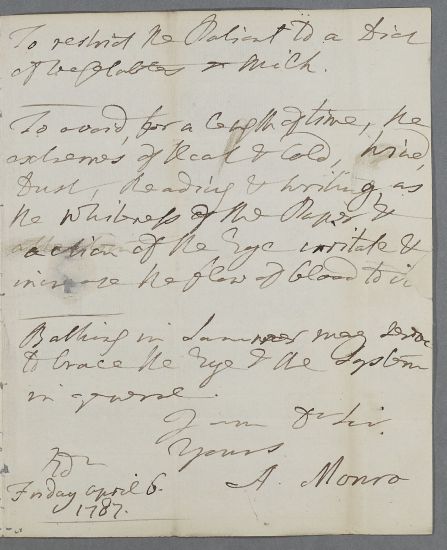 To restrict the Patient to a Diet
of vegetables & Milk.
To avoid, for a length of time, the
extremes of Heat & Cold, Wind,
Dust, Reading & writing, as
the whiteness of the Paper &
action of the Eye irritate &
increase the flow of blood to it
Bathing in Summer may serve
to brace the Eye & the System
in general.
I am Dr Sir
Yours
A. Monro
Edr
Friday April 6.
1787.